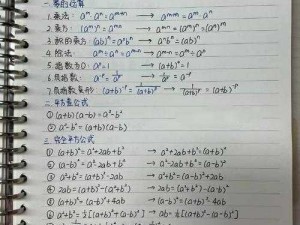 一. 幂的运算
1. 乘法: aᵐ·aⁿ = aᵐ⁺ⁿ → aᵐ⁺ⁿ = aᵐ·aⁿ
2. 乘方: (aᵐ)ⁿ = aᵐⁿ → aᵐⁿ = (aᵐ)ⁿ = (aⁿ)ᵐ
3. 积的乘方: (ab)ⁿ = aⁿbⁿ → aⁿbⁿ = (ab)ⁿ
4. 除法: aᵐ÷aⁿ = aᵐ⁻ⁿ → aᵐ⁻ⁿ = aᵐ÷aⁿ
5. 指数为0: a⁰ = 1 → (a+b)⁰ = 1
6. 负指数: a⁻ᵖ = 1/aᵖ → 1/aᵖ = a⁻ᵖ
7. 负指数变形: (a+b)⁻ᵖ = 1/(a+b)ᵖ → 1/(a+b)ᵖ = (a+b)⁻ᵖ
二. 平方差公式
① (a+b)(a-b) = a²-b²
② a²-b² = (a+b)(a-b)
三. 完全平方公式
① (a+b)² = a²+2ab+b² → a²+2ab+b² = (a+b)²
② (a-b)² = a²-2ab+b² → a²-2ab+b² = (a-b)²
③ a²+b² = (a+b)²-2ab → a²+b² = (a-b)²+2ab
④ 2ab = (a+b)²-(a²+b²) → 2ab = (a²+b²)-(a-b)²
⑤ (a+b)² = (a-b)²+4ab → (a-b)² = (a+b)²-4ab